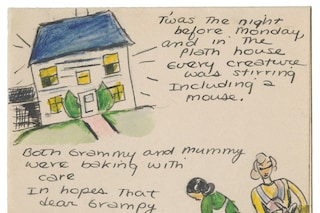 T'was the night
before Monday,
and in the
Plath house
Every creature
was stirring
Including a
mouse.
Both Grammy and mummy
were baking with
care
In hopes that
dear Grampy